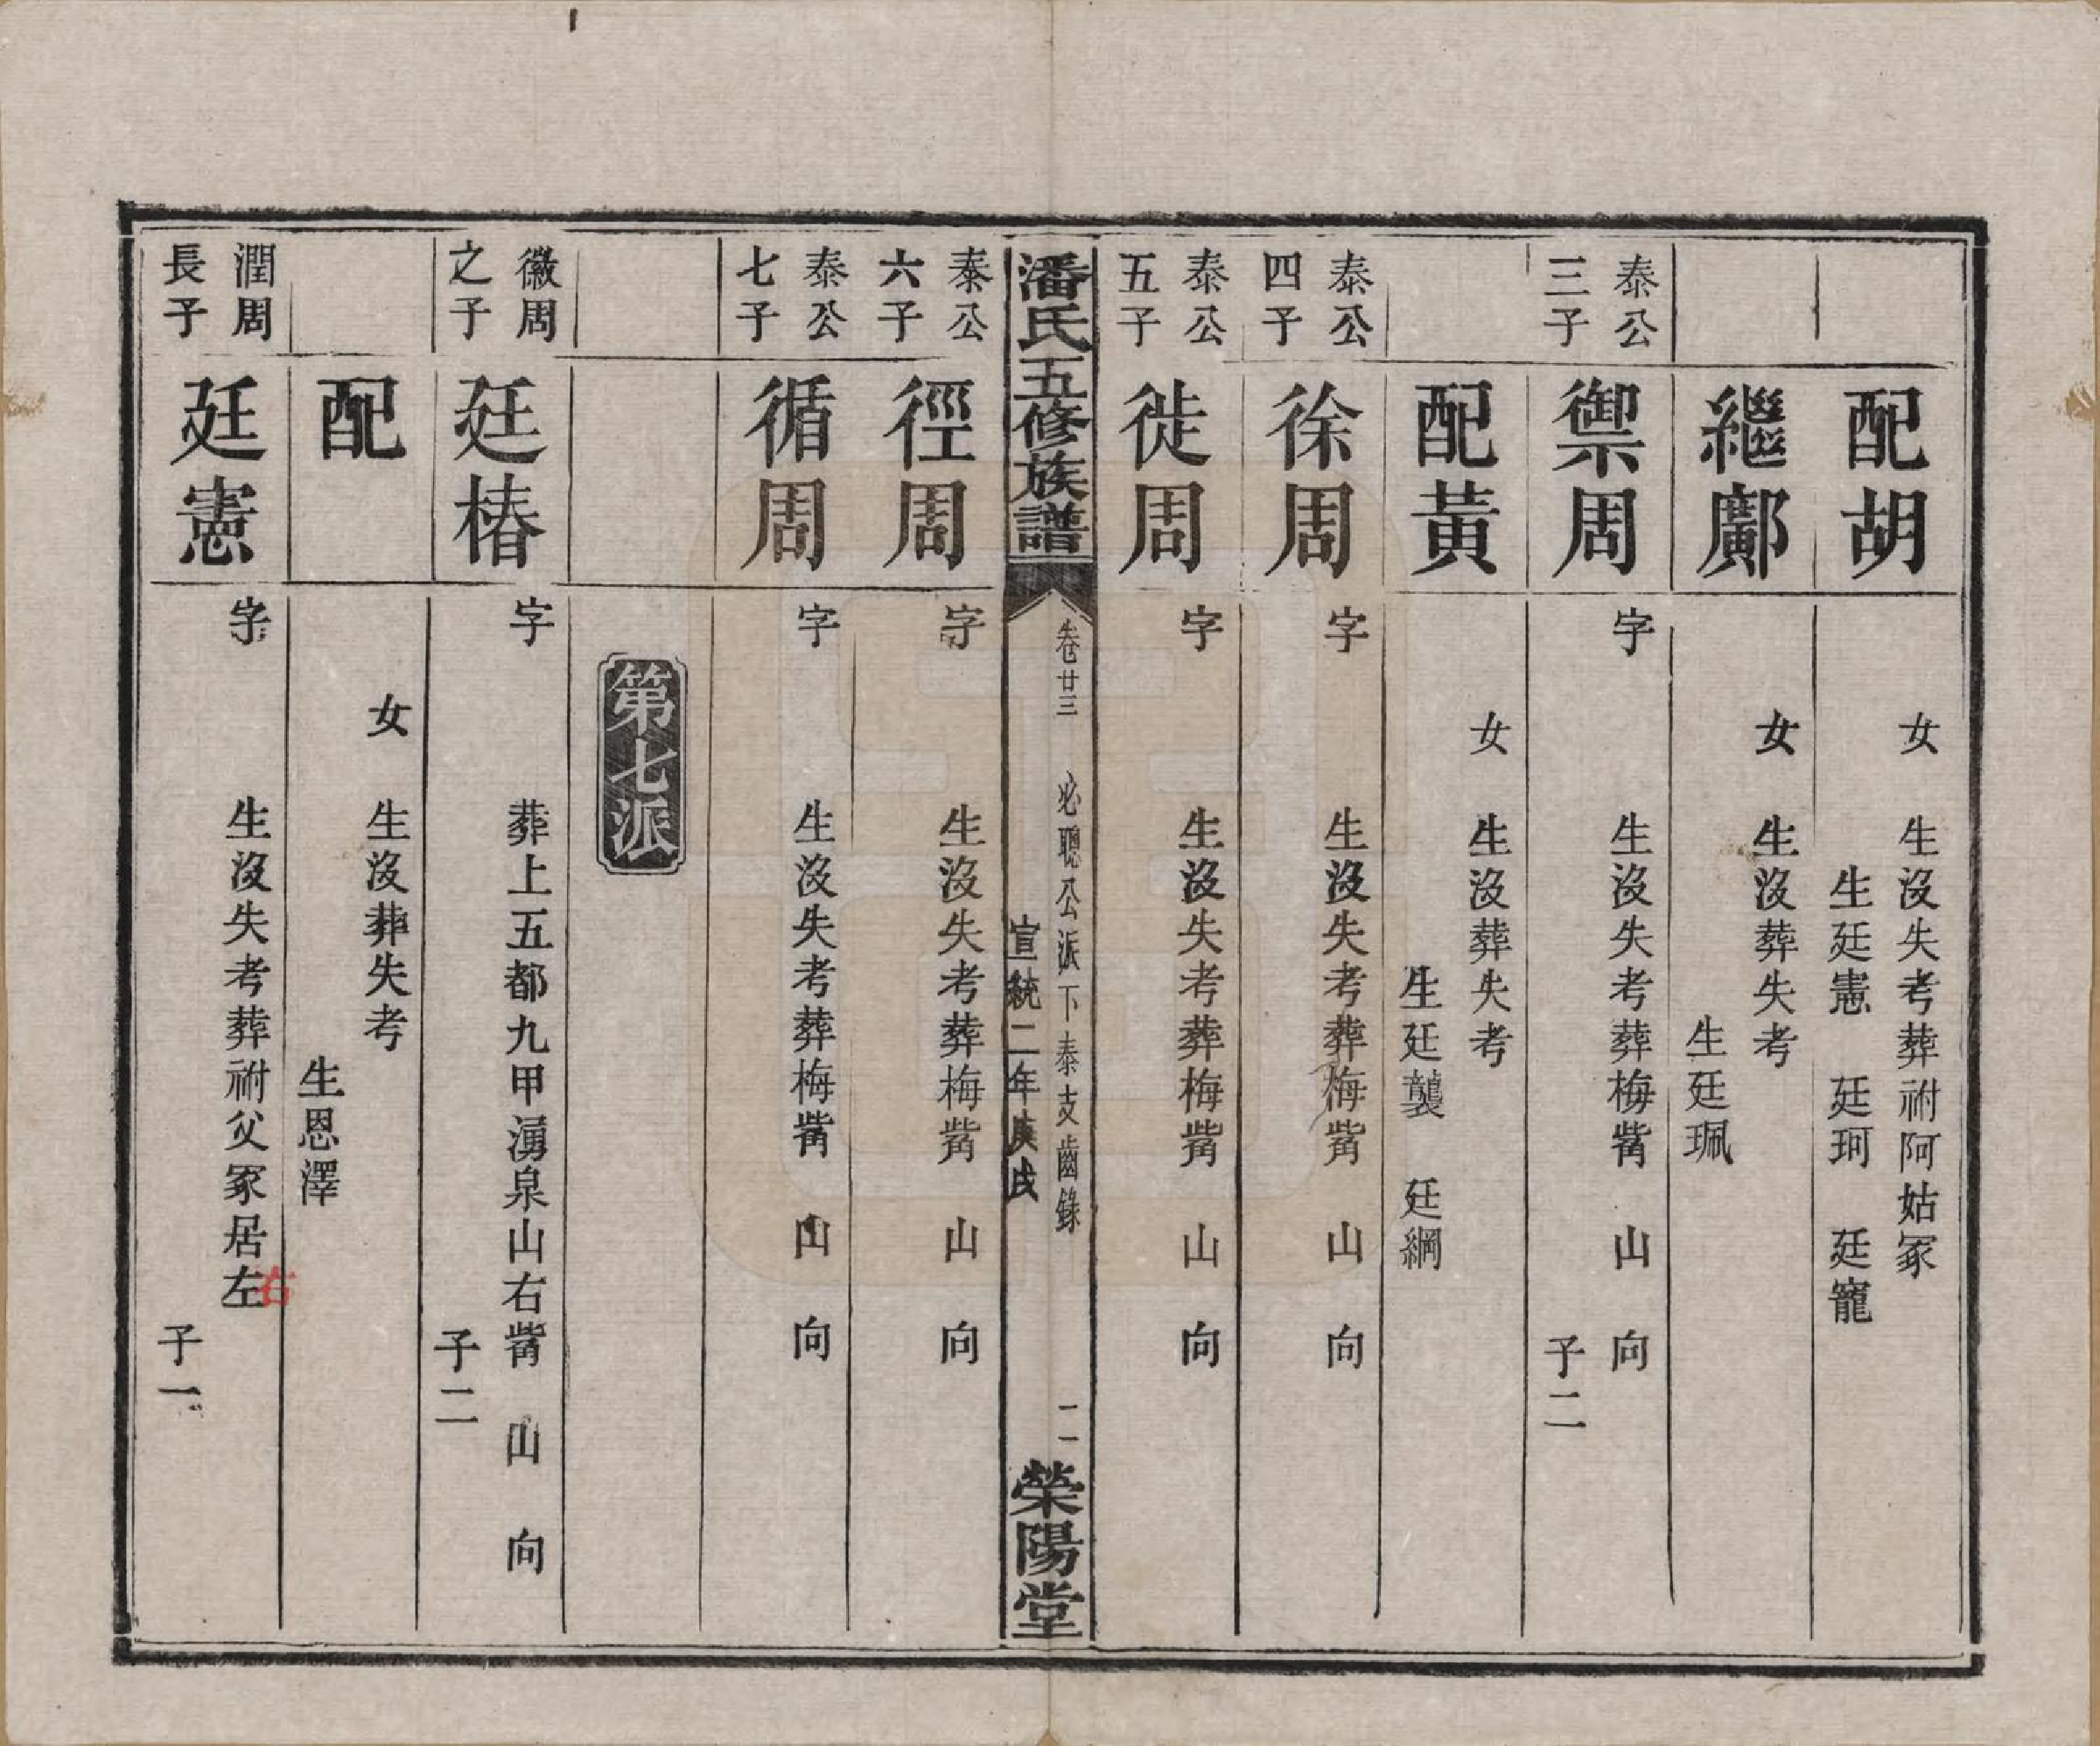 配胡
女　生沒失考葬祔阿姑冢
生廷憲　廷珂　廷寵
繼鄺
女　生沒葬失考
生廷珮
泰公
三子
禦周
字　生沒失考葬梅觜　山　向
子二
配黃
女　生沒葬失考
生廷襲　廷綱
泰公
四子
徐周
字　生沒失考葬梅觜　山　向
泰公
五子
徙周
字　生沒失考葬梅觜　山　向
潘氏五修族譜
卷廿三　必聰公派下泰支齒錄　二
宣統二年庚戌
榮陽堂
泰公
六子
徑周
字　生沒失考葬梅觜　山　向
泰公
七子
循周
字　生沒失考葬梅觜　山　向
第七派
徽周
之子
廷椿
字　葬上五都九甲湧泉山右觜　山　向
子二
配
女　生沒葬失考
生恩澤
潤周
長子
廷憲
字　生沒失考葬祔父冢居左
右
子一